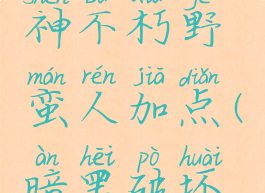 神不朽野
mán rén jiā diǎn
蛮人加点(
àn hēi pò huài
暗黑破坏